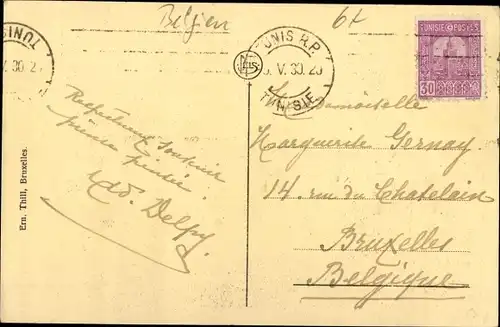 Belgien
6x
TUNIS
V 30
TUNIS R.P.
V. 30
TUNISIE
TUNISIE POSTES
30
Respectueux souvenir
Ad. Delpy.
Ern. Thill, Bruxelles.
Mademoiselle
Marguerite Gernay
14. rue du Chatelain
Bruxelles
Belgique